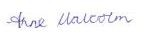 Anne Malcolm